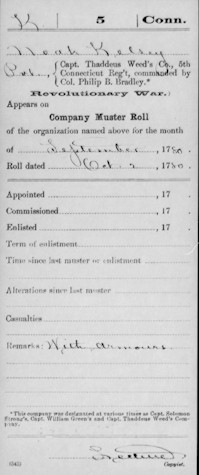 K 5 Conn.
Noah Kelsey
Pvt., Capt. Thaddeus Weed's Co., 5th
Connecticut Reg't, commanded by
Col. Philip B. Bradley.*
(Revolutionary War.)
Appears on
Company Muster Roll
of the organization named above for the month
of September, 1780.
Roll dated Oct. 2, 1780.
Appointed , 17 .
Commissioned , 17 .
Enlisted , 17 .
Term of enlistment
Time since last muster or enlistment
Alterations since last muster
Casualties
Remarks: With Armourer
*This company was designated at various times as Capt. Solomon
Strong's, Capt. William Green's and Capt. Thaddeus Weed's Com-
pany.
Copyist.